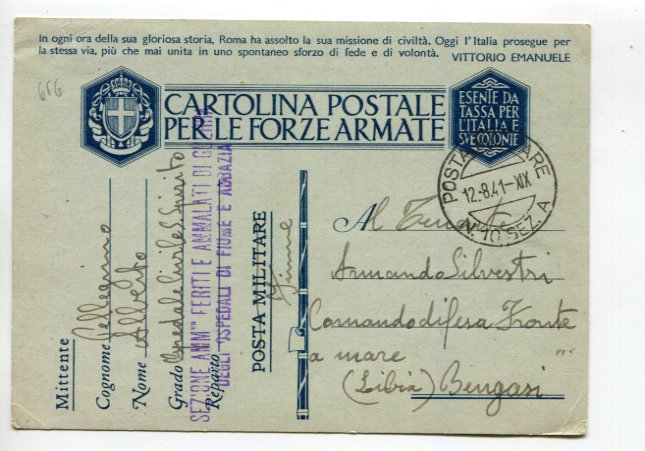 In ogni ora della sua gloriosa storia, Roma ha assolto la sua missione di civiltà. Oggi l'Italia prosegue per
la stessa via, più che mai unita in uno spontaneo sforzo di fede e di volontà. VITTORIO EMANUELE
656
CARTOLINA POSTALE
PER LE FORZE ARMATE
ESENTE DA
TASSA PER
L'ITALIA E
SUE COLONIE
POSTA MILITARE
12.8.41-XIX
N. 10 SEZ. A
Mittente
Cognome Pellegrino
Nome Alberto
Grado Ospedale Civile S. Spirito
Reparto
SEZIONE AMMva FERITI E AMMALATI DI GUERRA
DEGLI OSPEDALI DI FIUME E ABBAZIA
POSTA MILITARE
Fiume
Al Tenente
Armando Silvestri
Comando difesa Fronte
a mare
(Libia) Bengasi